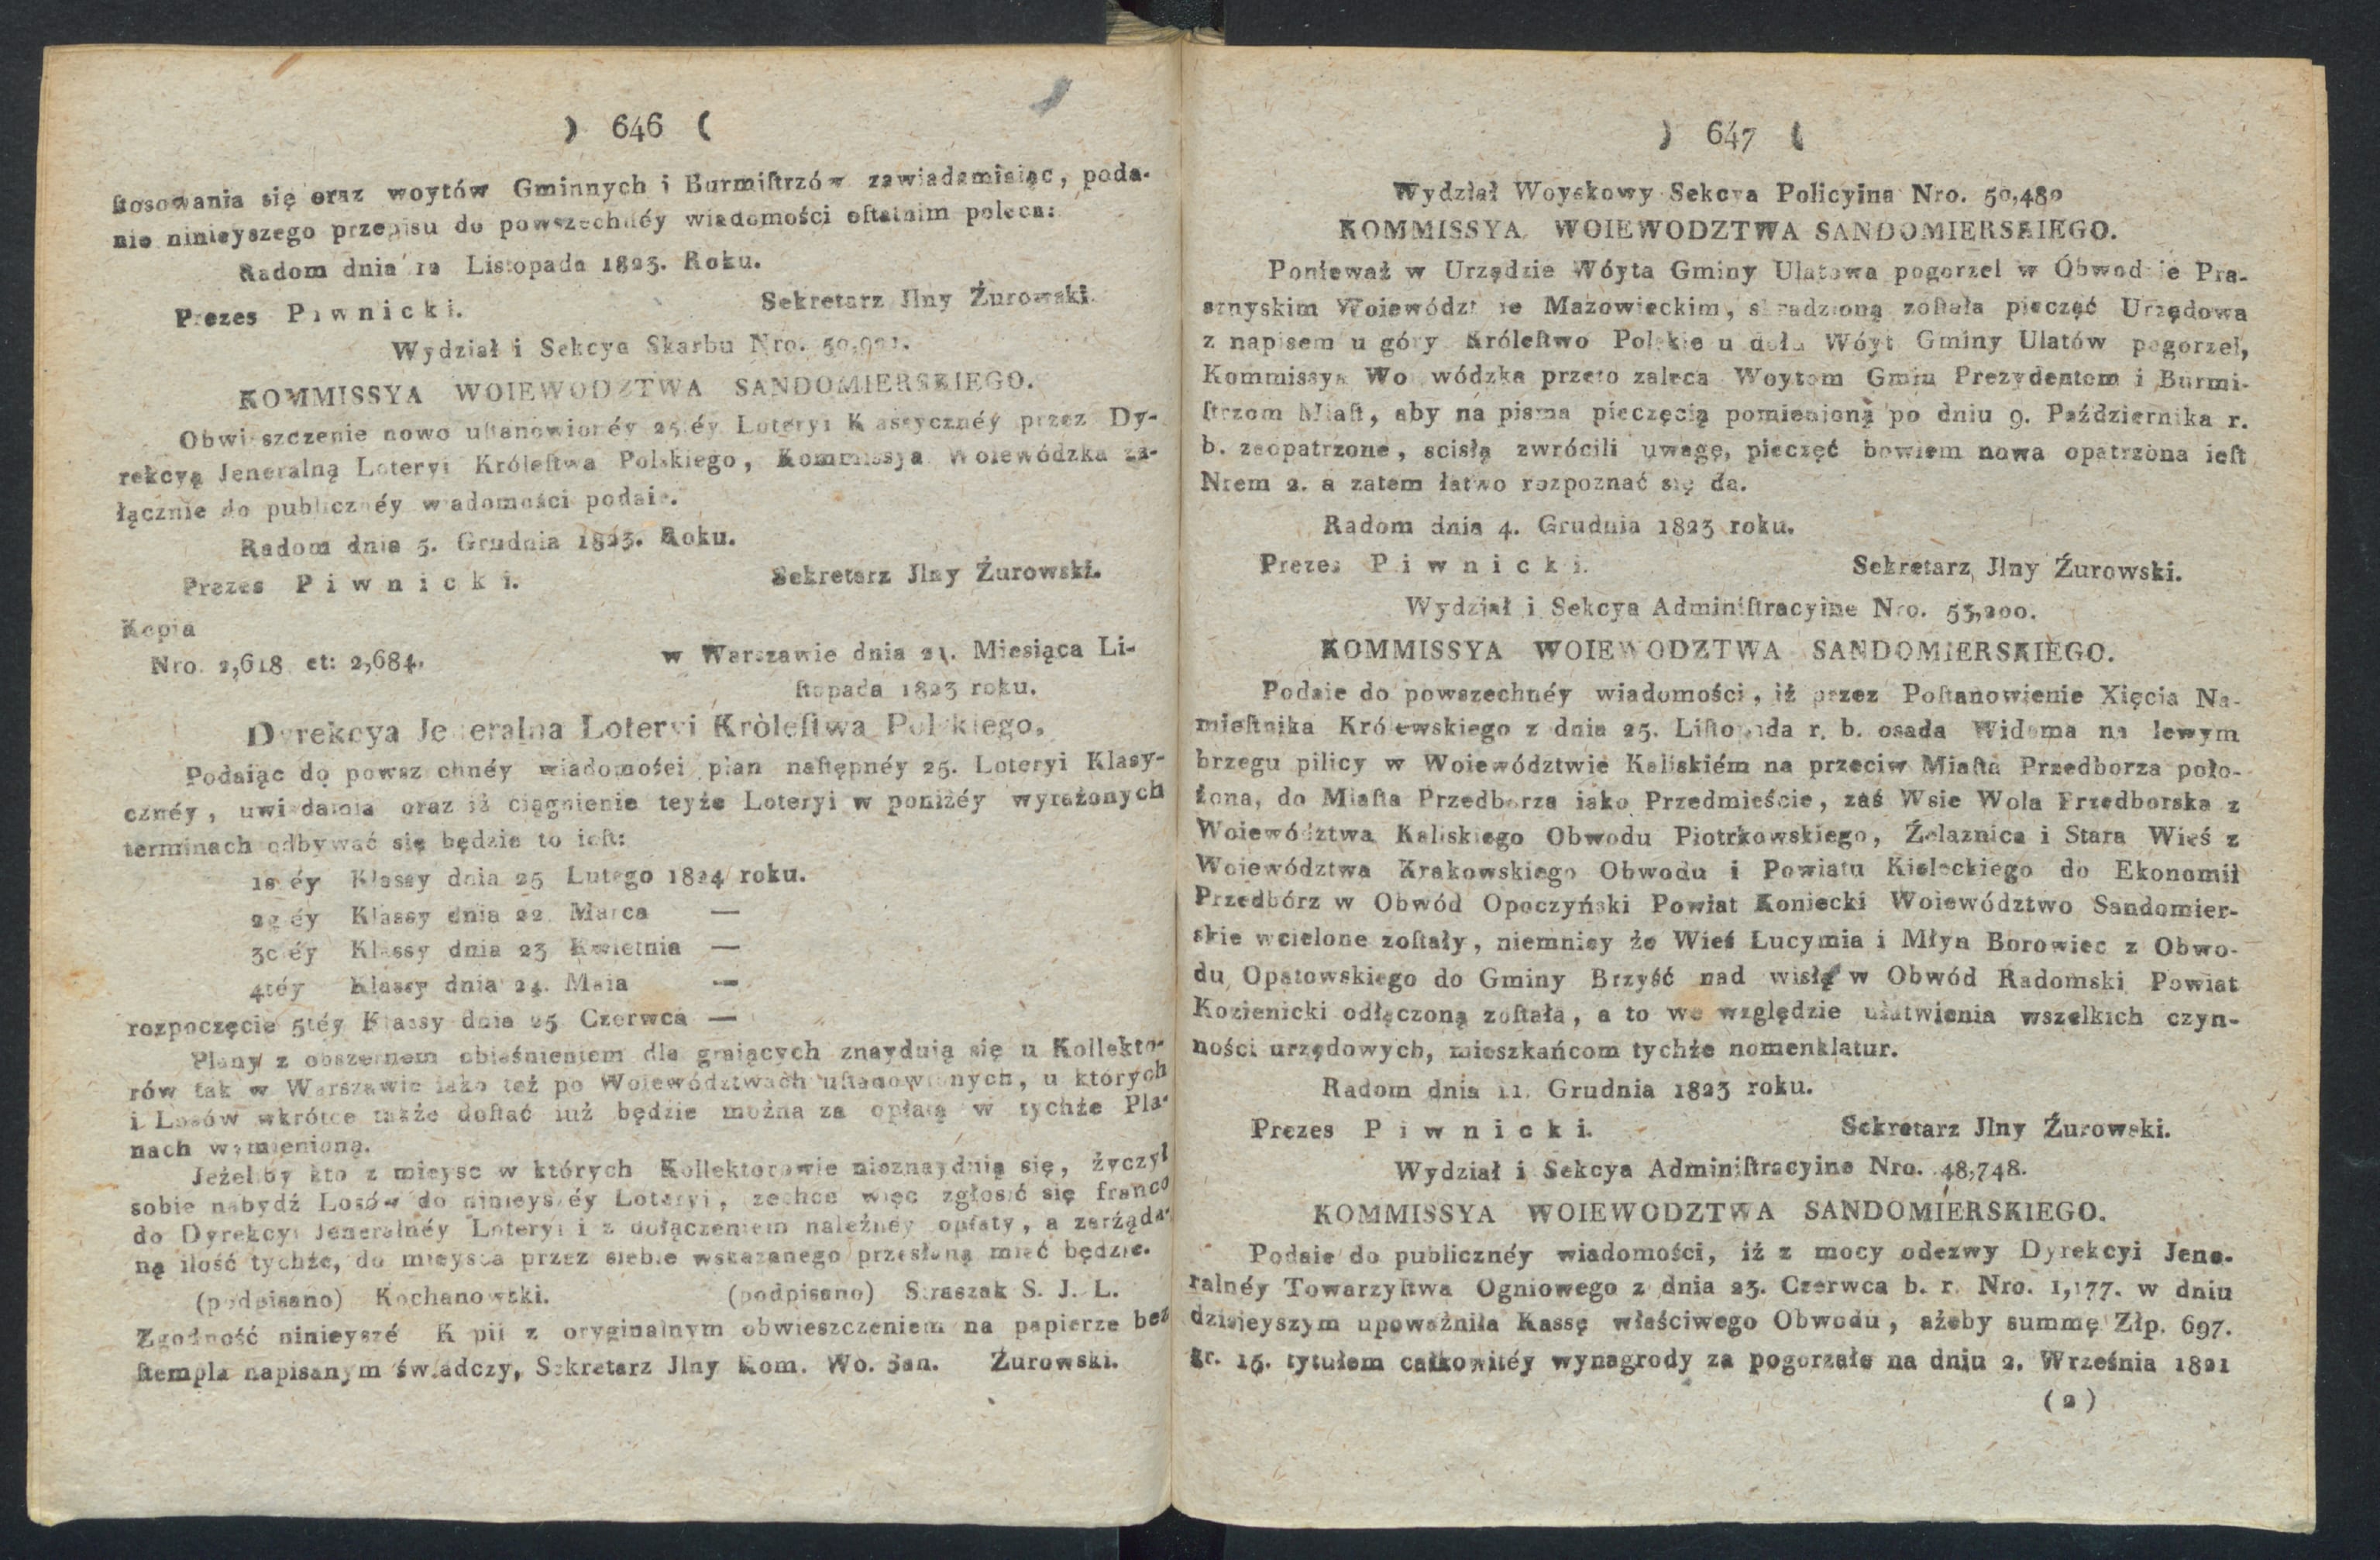 ) 646 (
ſtosowania się oraz woytów Gminnych i Burmiſtrzów zawiadamiaiąc, poda-
nie ninieyszego przepisu do powszechnéy wiadomości oſtatnim poleca:
Radom dnia 12 Listopada 1823. Roku.
Prezes Piwnicki. Sekretarz Jlny Żurowski.
Wydział i Sekcya Skarbu Nro.
KOMMISSYA WOIEWODZTWA SANDOMIERSKIEGO.
Obwieszczenie nowo uſtanowionéy 25téy Loteryi Klassycznéy przez Dy-
rekcyą Jeneralną Loteryi Króleſtwa Polskiego, Kommissya Woiewódzka za-
łącznie do publicznéy wiadomości podaie.
Radom dnia 5. Grudnia 1823. Roku.
Prezes Piwnicki. Sekretarz Jlny Żurowski.
Kopia
Nro. 2,618 et: 2,684. w Warszawie dnia 21. Miesiąca Li-
ſtopada 1823 roku.
Dyrekcya Jeneralna Loteryi Kròleſtwa Polskiego.
Podaiąc do powszechnéy wiadomości plan naſtępnéy 25. Loteryi Klasy-
cznéy, uwiadamia oraz iż ciągnienie teyże Loteryi w poniżéy wyrażonych
terminach odbywać się będzie to ieſt:
1széy Klassy dnia 25 Lutego 1824 roku.
2giéy Klassy dnia 22 Marca —
3ciéy Klassy dnia 23 Kwietnia —
4téy Klassy dnia 24. Maia —
rozpoczęcie 5téy Klassy dnia 25 Czerwca —
Plany z obszernem obiaśnieniem dla graiących znayduią się u Kollekto-
rów tak w Warszawie iako też po Woiewództwach uſtanowionych, u których
i Losów wkrótce także doſtać iuż będzie można za opłatą w tychże Pla-
nach wymienioną.
Jeżeliby kto z mieysc w których Kollektorowie nieznayduią się, życzył
sobie nabydź Losów do ninieyszéy Loteryi, zechce więc zgłosić się franco
do Dyrekcyi Jeneralnéy Loteryi i z dołączeniem należnéy opłaty, a zarząda-
ną ilość tychże, do mieysca przez siebie wskazanego przesłaną mieć będzie.
(podpisano) Kochanowski. (podpisano) Straszak S. J. L.
Zgodność ninieyszé Kopii z oryginalnym obwieszczeniem na papierze bez
ſtempla napisanym świadczy, Sekretarz Jlny Kom. Wo. San. Żurowski.
) 647 (
Wydział Woyskowy Sekcya Policyina Nro. 50,480
KOMMISSYA WOIEWODZTWA SANDOMIERSKIEGO.
Ponieważ w Urzędzie Wóyta Gminy Ulatowa pogorzel w Obwodzie Pra-
sznyskim Woiewództwie Mazowieckim, skradzioną zoſtała pieczęć Urzędowa
z napisem u góry Króleſtwo Polskie u dołu Wóyt Gminy Ulatów pogorzel,
Kommissya Woiewódzka przeto zaleca Woytom Gmin Prezydentom i Burmi-
ſtrzom Miaſt, aby na pisma pieczęcią pomienioną po dniu 9. Października r.
b. zaopatrzone, scisłą zwrócili uwagę, pieczęć bowiem nowa opatrzona ieſt
Nrem 2. a zatem łatwo rozpoznać się da.
Radom dnia 4. Grudnia 1823 roku.
Prezes Piwnicki. Sekretarz Jlny Żurowski.
Wydział i Sekcya Adminiſtracyina Nro. 53,200.
KOMMISSYA WOIEWODZTWA SANDOMIERSKIEGO.
Podaie do powszechnéy wiadomości, iż przez Poſtanowienie Xięcia Na-
mieſtnika Królewskiego z dnia 25. Liſtopada r. b. osada Widoma na lewym
brzegu pilicy w Woiewództwie Kaliskiém na przeciw Miaſta Przedborza poło-
żona, do Miaſta Przedborza iako Przedmieście, zaś Wsie Wola Przedborska z
Woiewództwa Kaliskiego Obwodu Piotrkowskiego, Żelaznica i Stara Wieś z
Woiewództwa Krakowskiego Obwodu i Powiatu Kieleckiego do Ekonomii
Przedbórz w Obwód Opoczyński Powiat Koniecki Woiewództwo Sandomier-
skie wcielone zoſtały, niemniey że Wieś Łucymia i Młyn Borowiec z Obwo-
du Opatowskiego do Gminy Brzyść nad wisłą w Obwód Radomski Powiat
Kozienicki odłączoną zoſtała, a to we względzie ułatwienia wszelkich czyn-
ności urzędowych, mieszkańcom tychże nomenklatur.
Radom dnia 11. Grudnia 1823 roku.
Prezes Piwnicki. Sekretarz Jlny Żurowski.
Wydział i Sekcya Adminiſtracyina Nro. 48,748.
KOMMISSYA WOIEWODZTWA SANDOMIERSKIEGO.
Podaie do publicznéy wiadomości, iż z mocy odezwy Dyrekcyi Jene-
ralnéy Towarzyſtwa Ogniowego z dnia 23. Czerwca b. r. Nro. 1,177. w dniu
dzisieyszym upoważniła Kassę właściwego Obwodu, ażeby summę Złp. 697.
gr. 15. tytułem całkowitéy wynagrody za pogorzałe na dniu 2. Września 1821
(2)